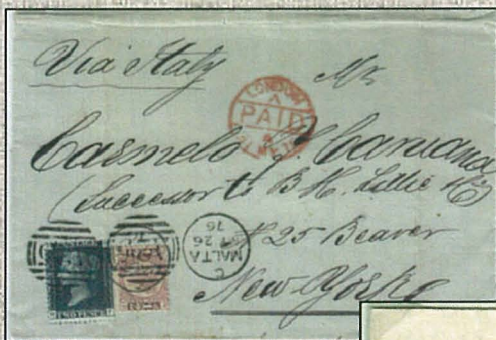 Via Italy
Mr
LONDON
PAID
Carmelo J. Caruana
(Successor to B. H. Lillie & Co)
25 Beaver
New Yorke
C
MALTA
26
76
TWO PENCE